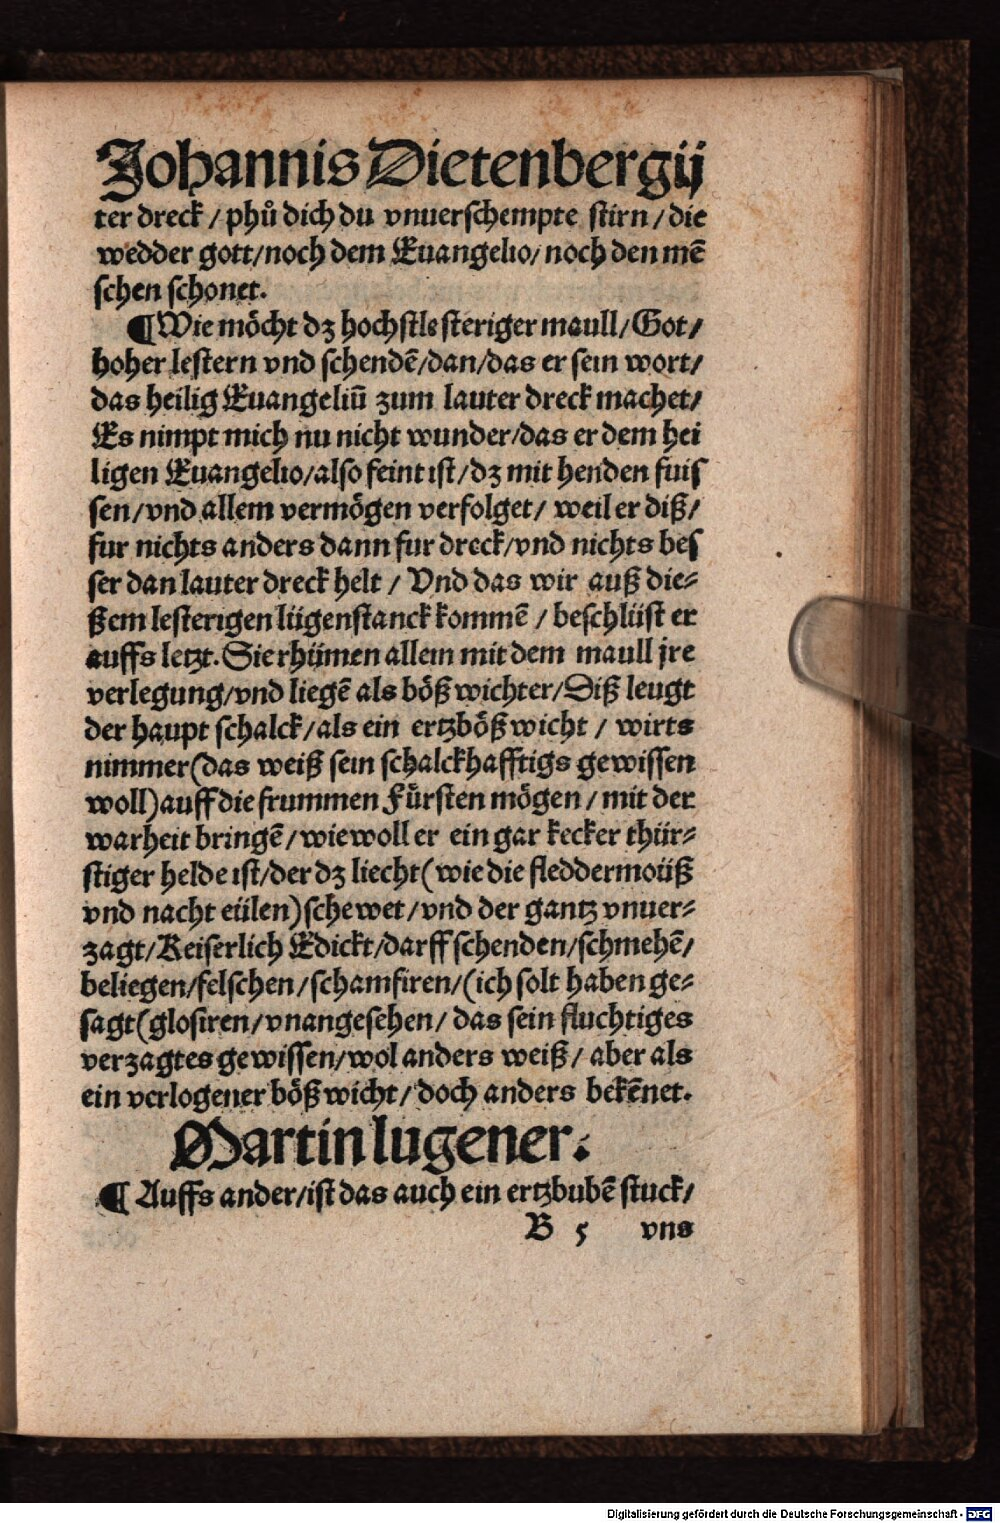 Johannis Dietenbergij
ter dreck / phů dich du vnuerschempte stirn / die
wedder gott / noch dem Euangelio / noch den mẽ
schen schonet.
¶ Wie möcht dz hochstle steriger maull / Got /
hoher lestern vnd schendẽ / dan / das er sein wort /
das heilig Euangeliũ zum lauter dreck machet /
Es nimpt mich nu nicht wunder / das er dem hei
ligen Euangelio / also feint ist / dz mit henden fuis
sen / vnd allem vermögen verfolget / weil er diß /
fur nichts anders dann fur dreck / vnd nichts bes
ser dan lauter dreck helt / Vnd das wir auß die⸗
ßem lesterigen lügenstanck kommẽ / beschlüst er
auffs letzt. Sie rhümen allein mit dem maull jre
verlegung / vnd liegẽ als böß wichter / Diß leugt
der haupt schalck / als ein ertzböß wicht / wirts
nimmer (das weiß sein schalckhafftigs gewissen
woll) auff die frummen Fürsten mögen / mit der
warheit bringẽ / wiewoll er ein gar kecker thür⸗
stiger helde ist / der dz liecht (wie die fleddermoüß
vnd nacht eülen) schewet / vnd der gantz vnuer⸗
zagt / Keiserlich Edickt / darff schenden / schmehẽ /
beliegen / felschen / schamfiren / (ich solt haben ge⸗
sagt (glosiren / vnangesehen / das sein fluchtiges
verzagtes gewissen / wol anders weiß / aber als
ein verlogener böß wicht / doch anders bekẽnet.
Martin lugener.
¶ Auffs ander / ist das auch ein ertzbubẽ stuck /
B 5 vns
Digitalisierung gefördert durch die Deutsche Forschungsgemeinschaft - DFG